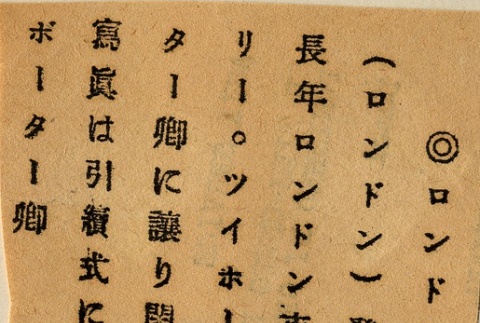 ◎ロンド
（ロンドン）
長年ロンドン市
リー。ツイホー
ター卿に讓り
寫眞は引續式に
ボーター卿